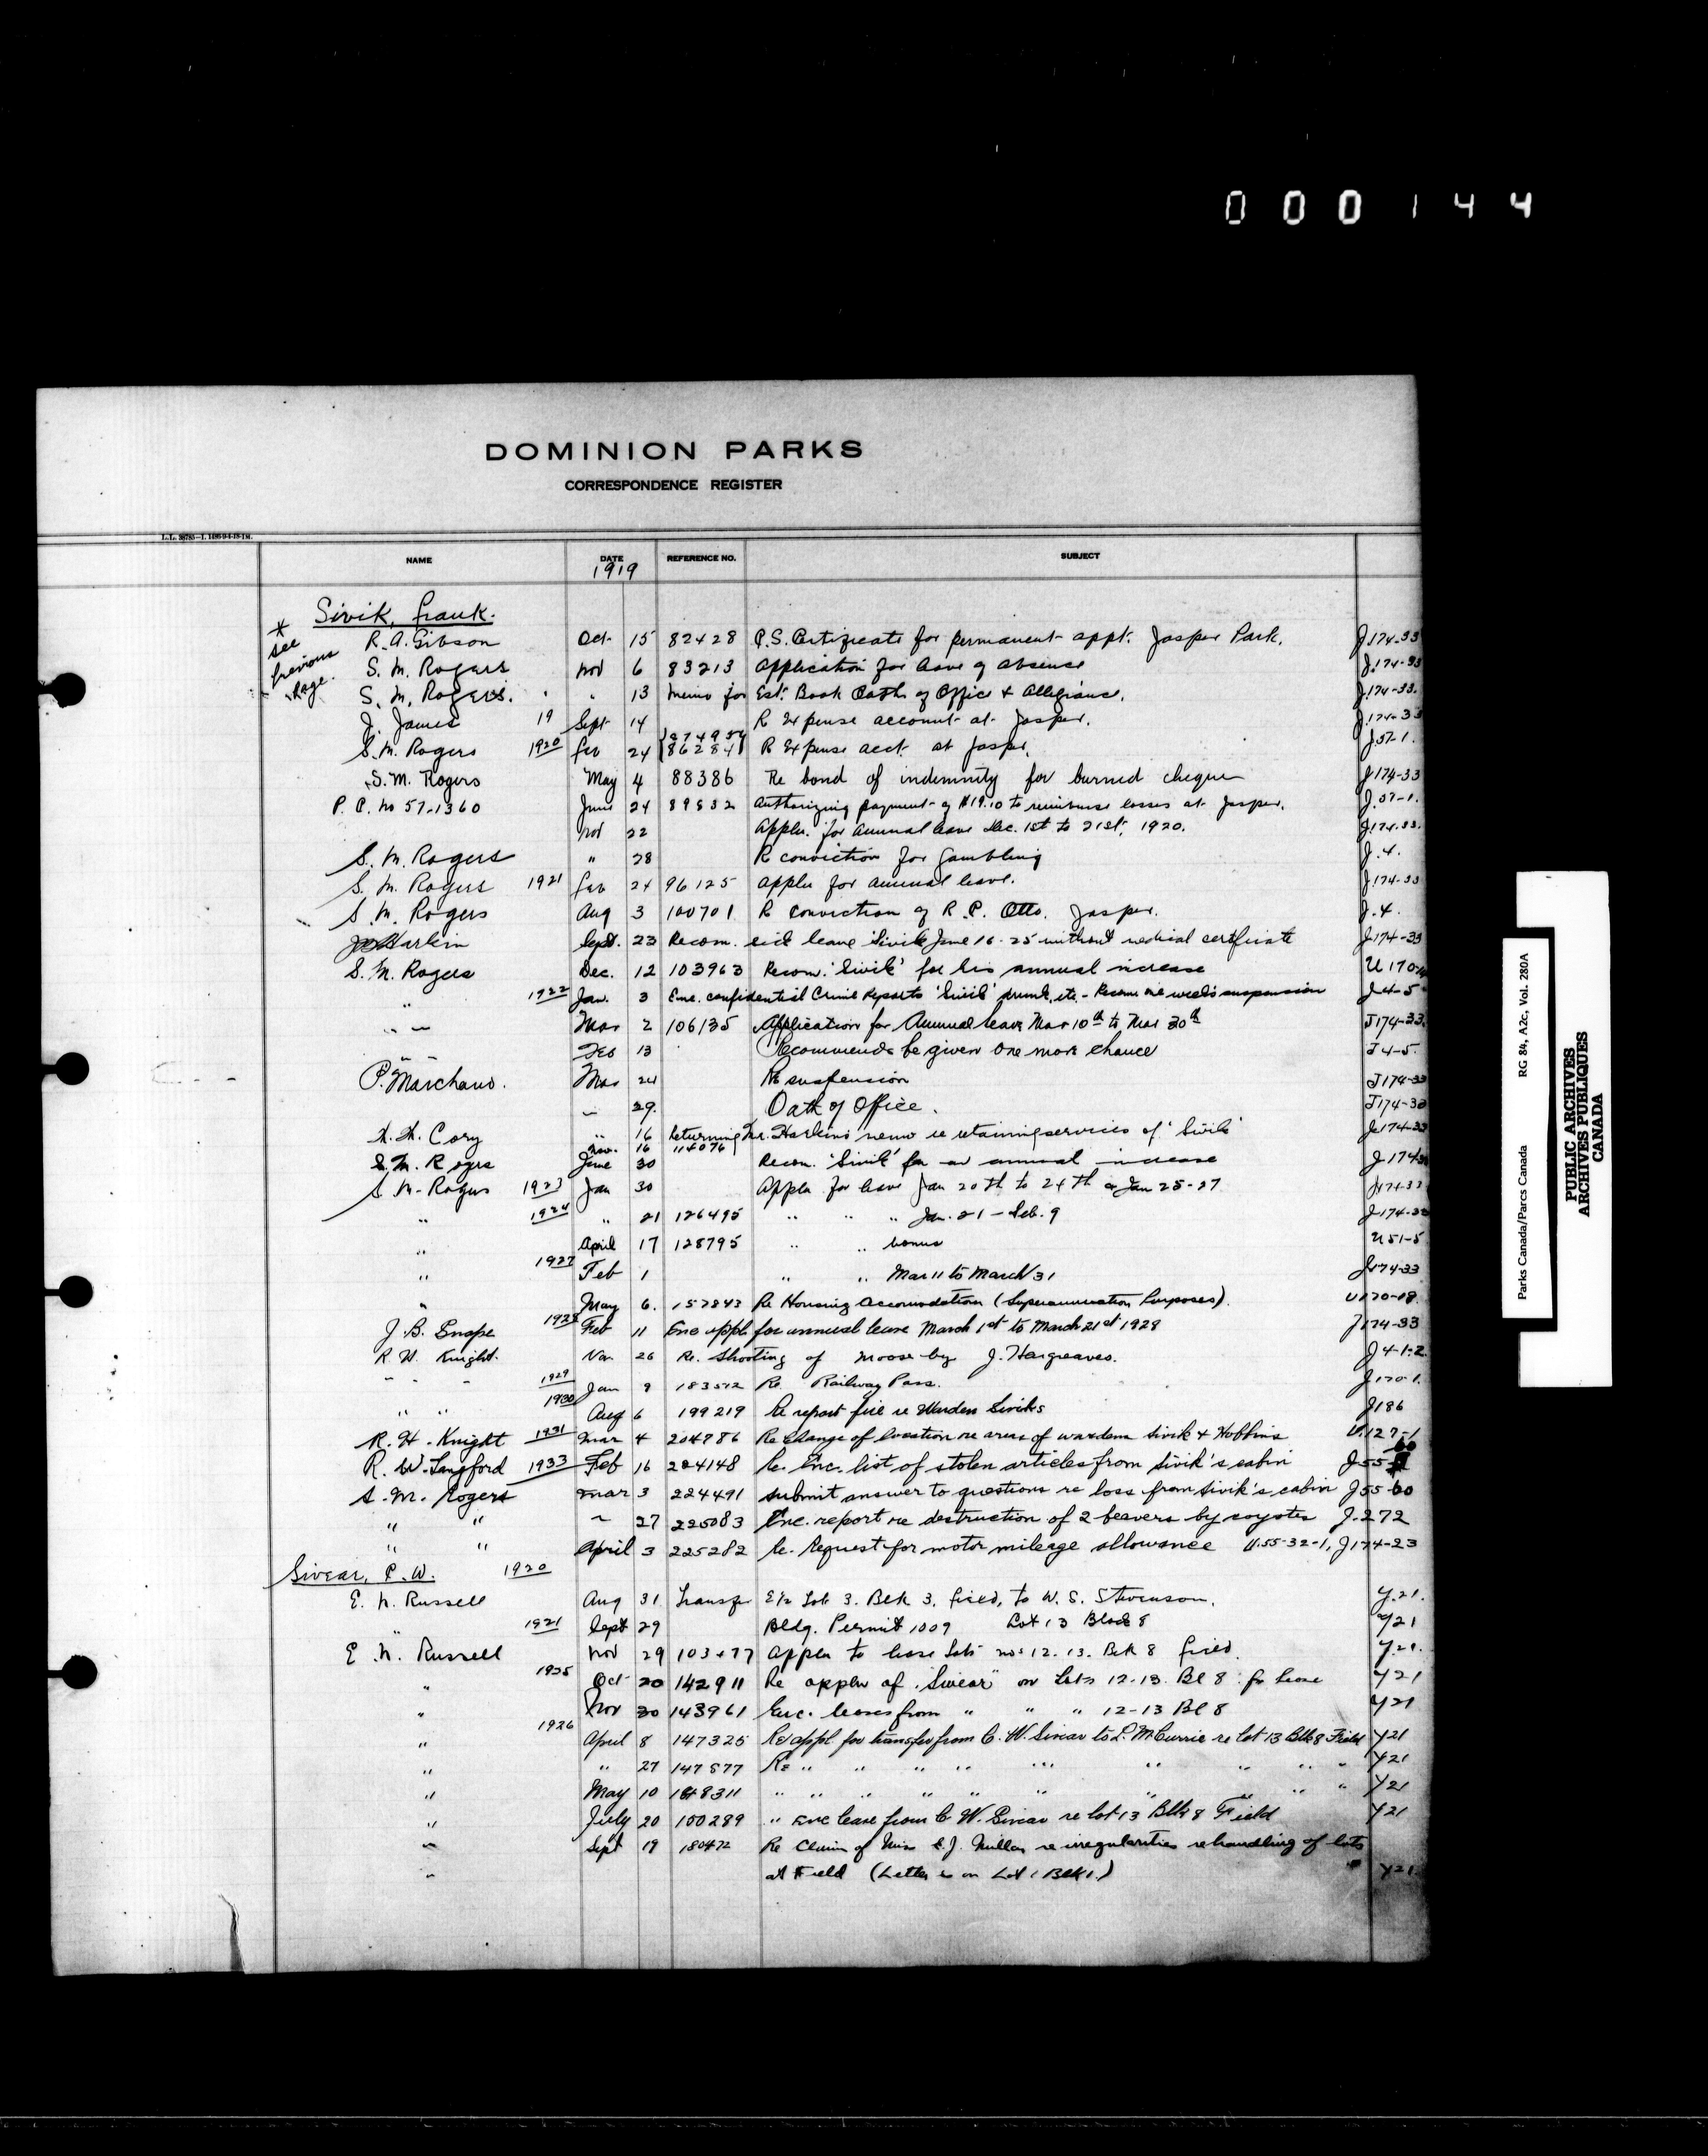 000144
DOMINION PARKS
CORRESPONDENCE REGISTER
NAME DATE REFERENCE NO. SUBJECT
1919
Sivik, Frank.
* see previous Page.
R.A. Gibson Oct 15 82428 C.S. Certificate for permanent appt. Jasper Park. J.174-33
S. M. Rogers Nov 6 83213 Application for leave of absence J.174-33
S. M. Rogers. " 13 Memo for Est. Book Oath of Office & Allegiance. J.174-33.
J. James 19 Sept 14 R Expense account at Jasper. J.174-33
S.M. Rogers 1920 Feb 24 86284 R Expense acct. at Jasper. J.57-1.
S.M. Rogers May 4 88386 Re bond of indemnity for burned cheque J174-33
P. C. No 57-1360 June 24 89832 Authorizing payment of $19.10 to reimburse losses at Jasper. J.57-1.
Nov 22 Appln. for annual leave Dec. 1st to 21st, 1920. J174.33.
S. M. Rogers " 28 R conviction for gambling J.4.
S. M. Rogers 1921 Feb 24 96125 Appln for annual leave. J174-33
S. M. Rogers Aug 3 100701 R conviction of R.P. Otto. Jasper. J.4.
JB Harkin Sept. 23 Recom. sick leave Sivik June 16-25 without medical certificate J174-33
S. M. Rogers Dec. 12 103963 Recom. 'Sivik' for his annual increase U 170-
" 1922 Jan. 3 Enc. confidential Crime Reports 'Sivik' drunk, etc. - Recom one week's suspension J-4-5
" " Mar 2 106135 Application for Annual leave Mar 10th to Mar 30th J174-33.
" " Feb 13 Recommends be given one more chance J4-5.
P. Marchand. Mar 24 Re suspension J174-33
" 29. Oath of Office. J174-33
W. W. Cory " 16 Returning Mr. Harkin's memo re retaining services of 'Sivik' J174-33
Nov. 16 114076
S. M. Rogers June 30 Recom. 'Sivik' for an annual increase J-174-
S. M. Rogers 1923 Jan 30 Appln for leave Jan 20th to 24th & Jan 25-27 J174-33
" 1924 " 21 126495 " " " Jan. 21 - Feb. 9 J-174-33
" April 17 128795 " " bonus U51-5
" 1927 Feb 1 " " Mar 11 to March 31 J174-33
" May 6. 157843 Re Housing Accomodation (Superannuation Purposes). U170-18
J. B. Snape 1928 Feb 11 Enc appl for annual leave March 1st to March 21st 1928 J174-33
R. H. Knight. Nov. 26 Re. Shooting of moose by J. Hargreaves. J4-1-2
" " " 1929 Jan 9 183512 Re Railway Pass. J170-1.
" " 1930 Aug 6 199219 Re report fire re Warden Siviks J186
R. H. Knight 1931 Mar 4 204786 Re change of location re areas of wardens Sivik & Hobbins U.127-1
R. W. Langford 1933 Feb 16 224148 Re. Enc. list of stolen articles from Sivik's cabin J55-60
S. M. Rogers Mar 3 224491 submit answer to questions re loss from Sivik's cabin J55-60
" " ~ 27 225083 Enc. report re destruction of 2 beavers by coyotes J.272
" " April 3 225282 Re. Request for motor mileage allowance U.55-32-1, J174-23
Sivear, C.W. 1920
E. N. Russell Aug 31 Transfer E½ Lot 3. Blk 3. Field, to W. S. Stevenson. Y.21.
" 1921 Sept 29 Bldg. Permit 1009 Lot 13 Block 8 Y21
E. N. Russell Nov 29 103477 Appln to lease Lots nos 12. 13. Blk 8 Field. Y.21.
" 1925 Oct 20 142911 Re appln of "Sivear" on Lots 12-13. Bl 8 for lease Y21
" Nov 30 143961 Enc. leases from " " " 12-13 Bl 8 Y21
" 1926 April 8 147325 Re appl for transfer from C. W. Sivear to L. McCurrie re lot 13 Blk 8 Field Y21
" " 27 147877 Re " " " " " " " " " Y21
" May 10 148311 " " " " " " " " " Y21
" July 20 150289 " Enc lease from C. W. Sivear re lot 13 Blk 8 Field Y21
" Sept 19 180472 Re Claim of Miss E.J. Millar re irregularities re handling of lots
" at Field (Letter is on Lot 1 Blk 1.) Y21.
RG 84, A2c, Vol. 280A
Parks Canada/Parcs Canada
PUBLIC ARCHIVES
ARCHIVES PUBLIQUES
CANADA